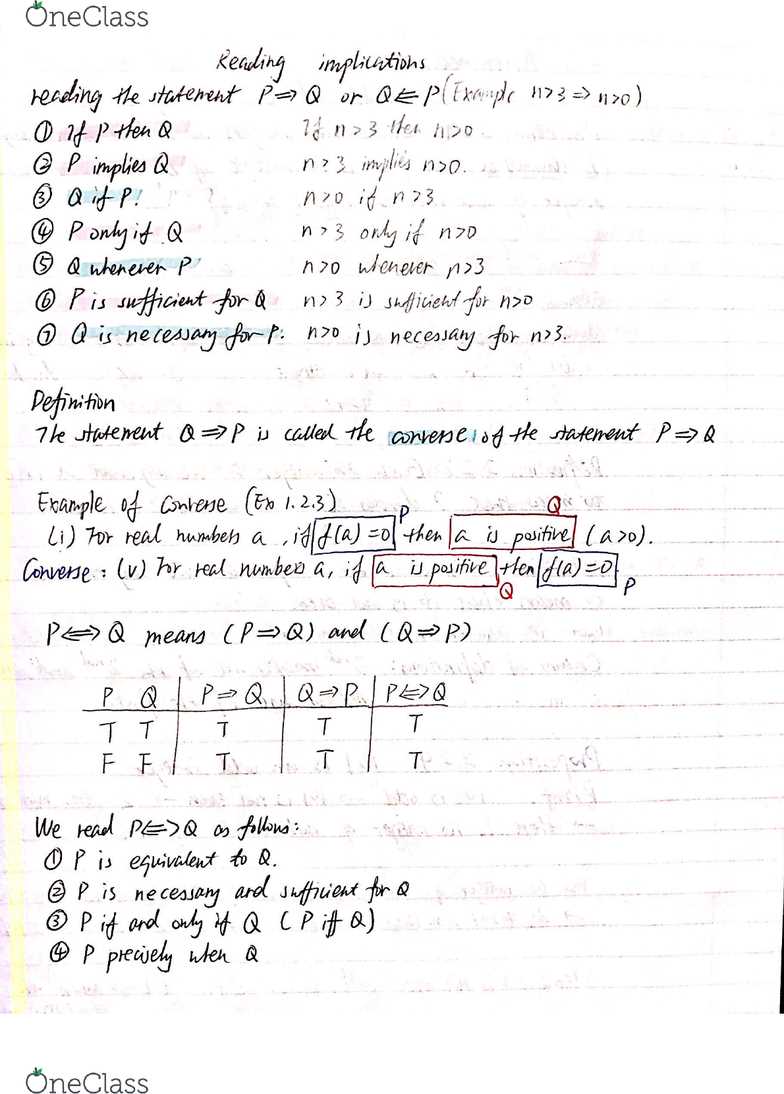 OneClass
Reading implications
reading the statement P⇒Q or Q⇐P (Example n>3 ⇒ n>0)
① If P then Q If n>3 then n>0
② P implies Q n>3 implies n>0.
③ Q if P. n>0 if n>3
④ P only if Q n>3 only if n>0
⑤ Q whenever P n>0 whenever n>3
⑥ P is sufficient for Q n>3 is sufficient for n>0
⑦ Q is necessary for P. n>0 is necessary for n>3.
Definition
The statement Q⇒P is called the converse of the statement P⇒Q
Example of Converse (Ex 1.2.3)
P Q
(i) For real numbers a, if f(a)=0 then a is positive (a>0).
Converse: (v) For real numbers a, if a is positive then f(a)=0
Q P
P⇔Q means (P⇒Q) and (Q⇒P)
P Q P⇒Q Q⇒P P⇔Q
T T T T T
F F T T T
We read P⇔Q as follows:
① P is equivalent to Q.
② P is necessary and sufficient for Q
③ P if and only if Q (P iff Q)
④ P precisely when Q
OneClass